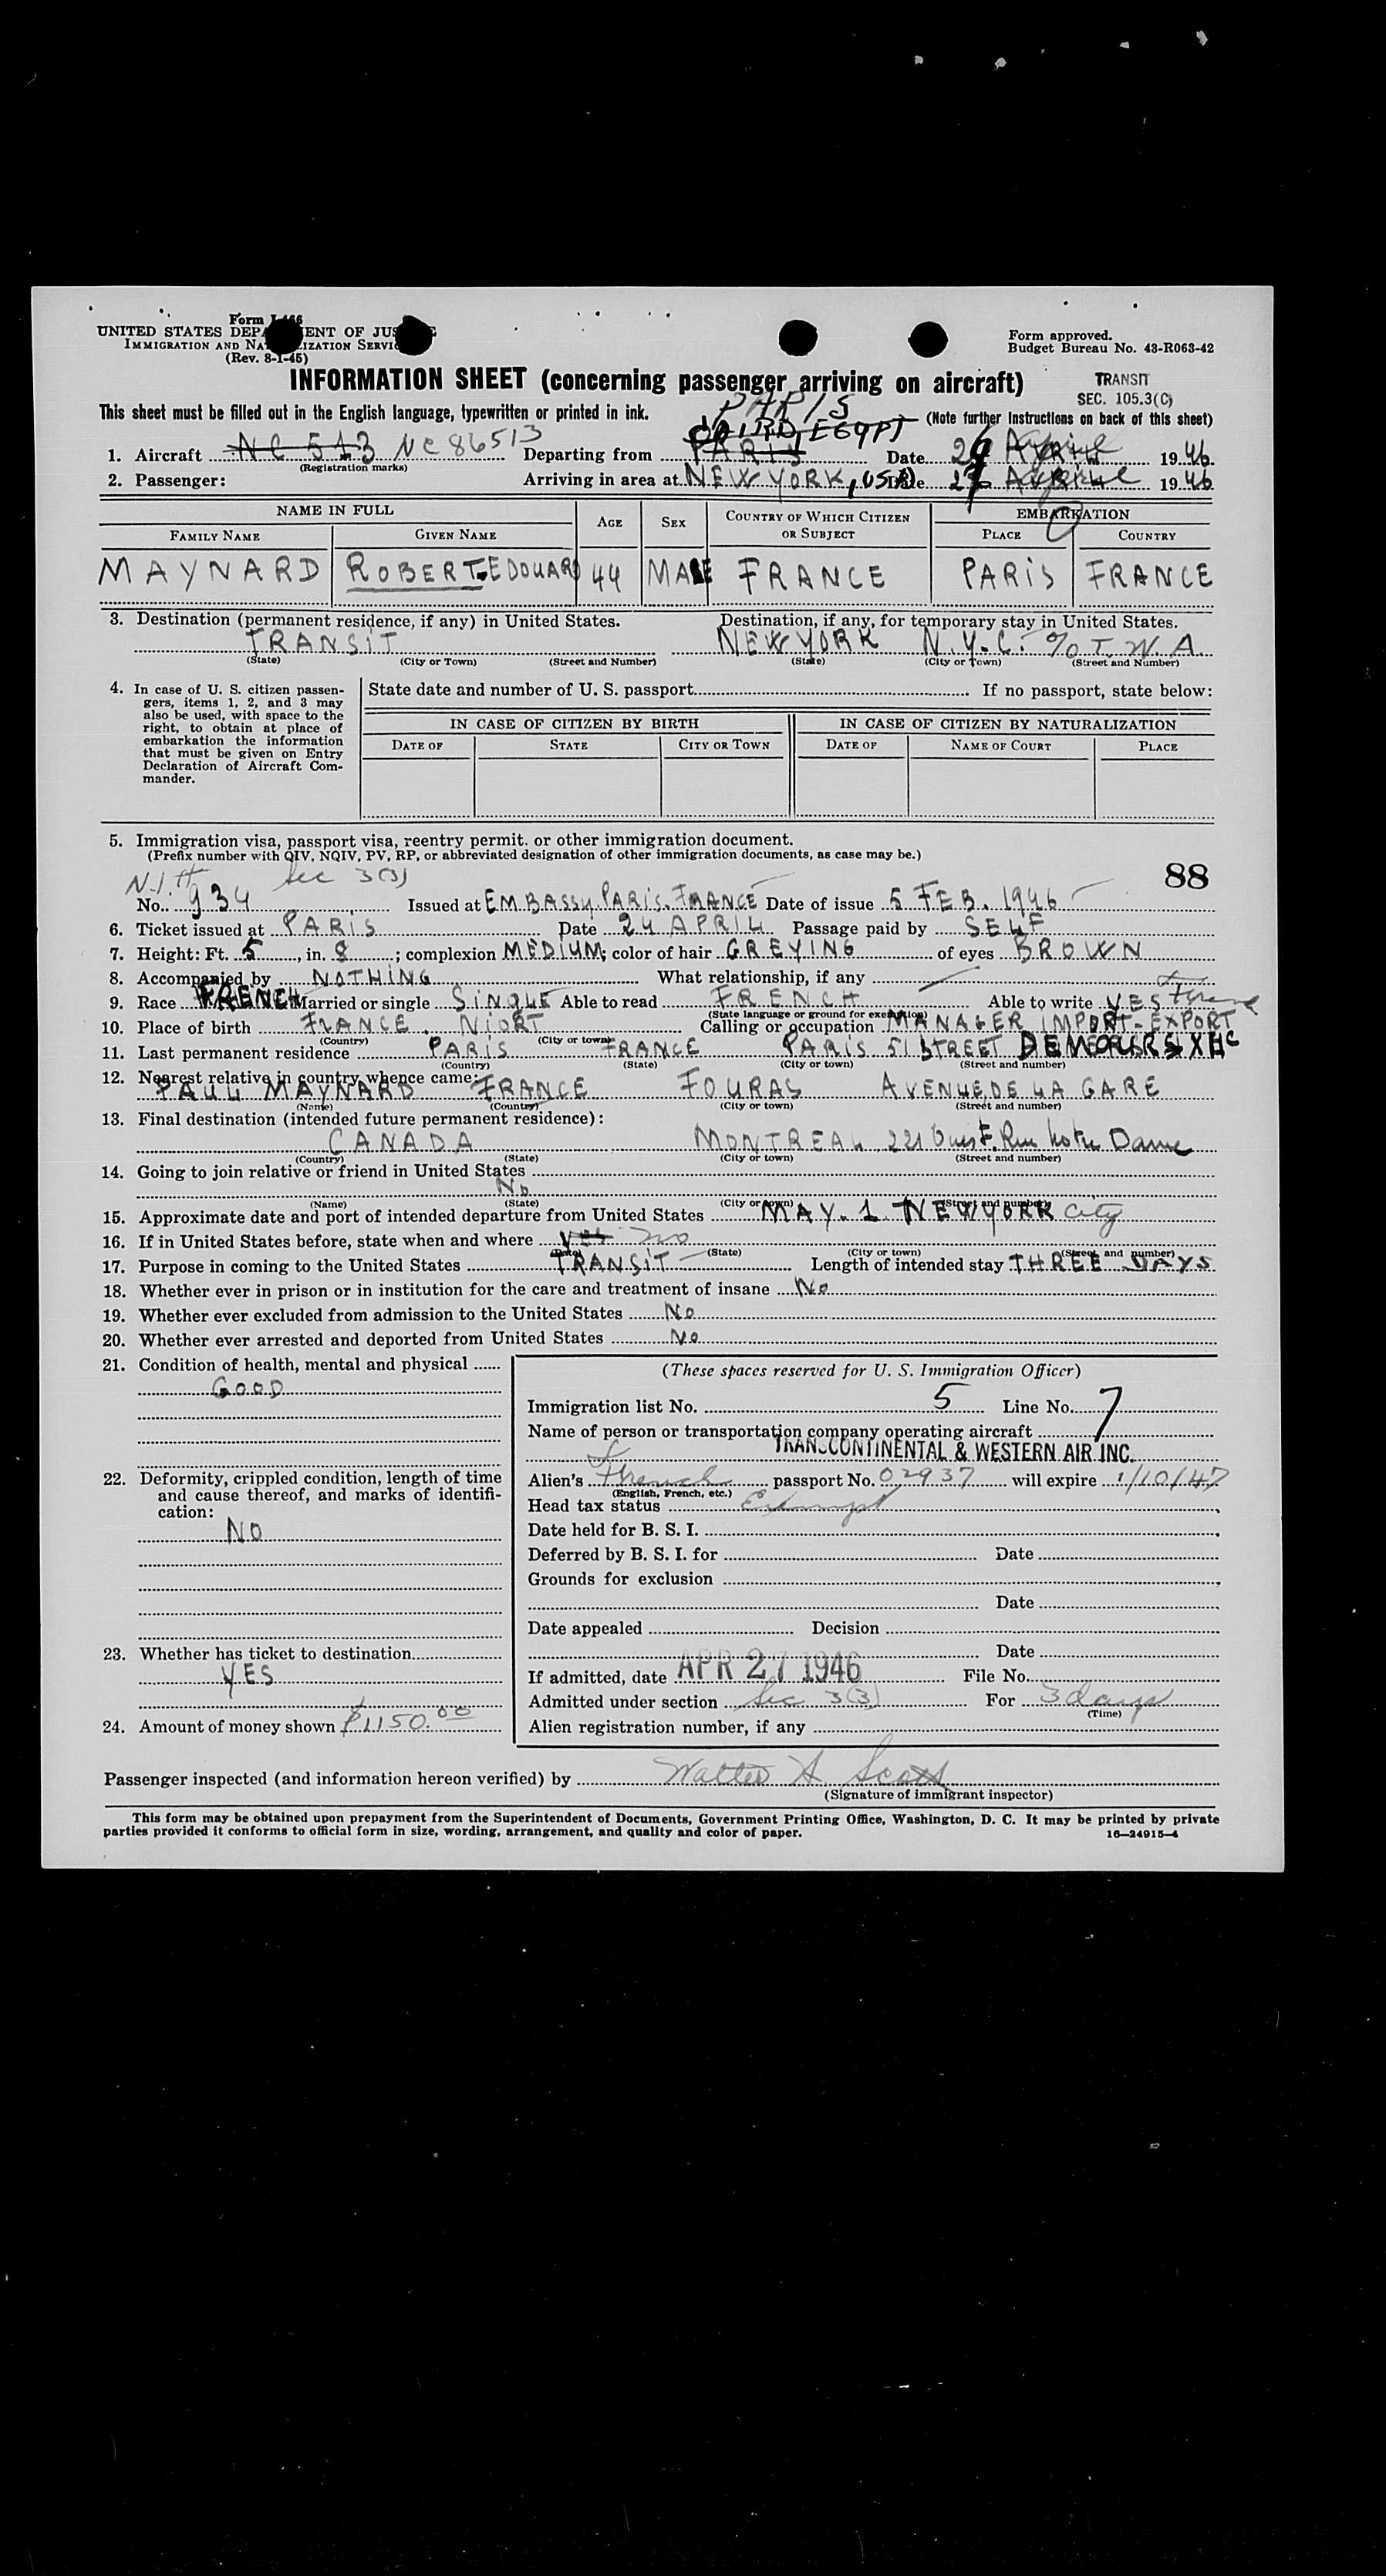 Form I-466
UNITED STATES DEPA ENT OF JUS
IMMIGRATION AND NA IZATION SERVI
(Rev. 8-1-45)
Form approved.
Budget Bureau No. 43-R063-42
INFORMATION SHEET (concerning passenger arriving on aircraft)
TRANSIT
SEC. 105.3(C)
This sheet must be filled out in the English language, typewritten or printed in ink.
PARIS
(Note further instructions on back of this sheet)
CAIRO, EGYPT
1. Aircraft NC 513 NC 86513 Departing from PARIS Date 26 April 1946
(Registration marks)
2. Passenger: Arriving in area at NEW YORK, USA Date 27 April 1946
NAME IN FULL AGE SEX COUNTRY OF WHICH CITIZEN OR SUBJECT EMBARKATION
FAMILY NAME GIVEN NAME PLACE COUNTRY
MAYNARD ROBERT EDOUARD 44 MALE FRANCE PARIS FRANCE
3. Destination (permanent residence, if any) in United States. Destination, if any, for temporary stay in United States.
TRANSIT NEW YORK N.Y.C. % T.W.A.
(State) (City or Town) (Street and Number) (State) (City or Town) (Street and Number)
4. In case of U. S. citizen passengers, items 1, 2, and 3 may also be used, with space to the right, to obtain at place of embarkation the information that must be given on Entry Declaration of Aircraft Commander.
State date and number of U. S. passport If no passport, state below:
IN CASE OF CITIZEN BY BIRTH IN CASE OF CITIZEN BY NATURALIZATION
DATE OF STATE CITY OR TOWN DATE OF NAME OF COURT PLACE
5. Immigration visa, passport visa, reentry permit. or other immigration document.
(Prefix number with QIV, NQIV, PV, RP, or abbreviated designation of other immigration documents, as case may be.)
88
Sec 3(3)
No. 934 Issued at EMBASSY PARIS. FRANCE Date of issue 5 FEB. 1946
6. Ticket issued at PARIS Date 24 APRIL Passage paid by SELF
7. Height: Ft. 5, in. 8; complexion MEDIUM; color of hair GREYING of eyes BROWN
8. Accompanied by NOTHING What relationship, if any
9. Race FRENCH Married or single SINGLE Able to read FRENCH Able to write YES
(State language or ground for exemption)
10. Place of birth FRANCE. NIORT Calling or occupation MANAGER IMPORT-EXPORT
(Country) (City or town)
11. Last permanent residence PARIS FRANCE PARIS 51 STREET DEMOURS XIIC
(Country) (State) (City or town) (Street and number)
12. Nearest relative in country whence came:
PAUL MAYNARD FRANCE FOURAS AVENUE DE LA GARE
(Name) (Country) (City or town) (Street and number)
13. Final destination (intended future permanent residence):
CANADA MONTREAL 221 Ouest Rue Notre Dame
(Country) (State) (City or town) (Street and number)
14. Going to join relative or friend in United States
No
(Name) (State) (City or town) (Street and number)
15. Approximate date and port of intended departure from United States MAY. 1 NEW YORK City
16. If in United States before, state when and where no
(Date) (State) (City or town) (Street and number)
17. Purpose in coming to the United States TRANSIT Length of intended stay THREE DAYS
18. Whether ever in prison or in institution for the care and treatment of insane No
19. Whether ever excluded from admission to the United States No
20. Whether ever arrested and deported from United States No
21. Condition of health, mental and physical
GOOD
22. Deformity, crippled condition, length of time and cause thereof, and marks of identification:
NO
23. Whether has ticket to destination
YES
24. Amount of money shown $1150.00
(These spaces reserved for U. S. Immigration Officer)
Immigration list No. 5 Line No. 7
Name of person or transportation company operating aircraft
TRANSCONTINENTAL & WESTERN AIR INC.
Alien's French passport No. 02937 will expire 1/10/47
(English, French, etc.)
Head tax status Exempt
Date held for B. S. I.
Deferred by B. S. I. for Date
Grounds for exclusion
Date
Date appealed Decision
Date
If admitted, date APR 27 1946 File No.
Admitted under section Sec 3(3) For 3 days
(Time)
Alien registration number, if any
Passenger inspected (and information hereon verified) by Walter A. Scott
(Signature of immigrant inspector)
This form may be obtained upon prepayment from the Superintendent of Documents, Government Printing Office, Washington, D. C. It may be printed by private
parties provided it conforms to official form in size, wording, arrangement, and quality and color of paper. 16—24915-4